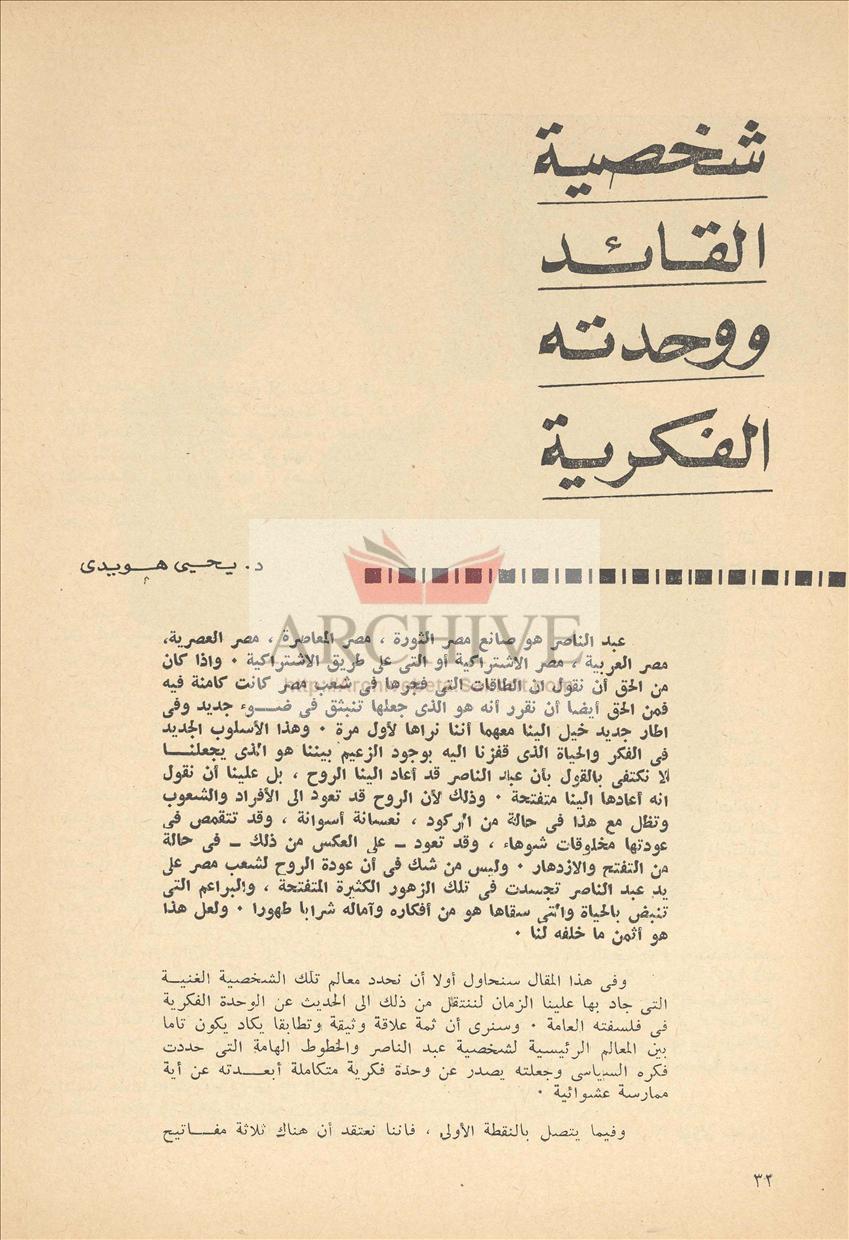 شخصية
القائد
ووحدته
الفكرية
د. يحيى هويدى
ARCHIVE
عبد الناصر هو صانع مصر الثورة ، مصر المعاصرة ، مصر العصرية،
مصر العربية ، مصر الاشتراكية أو التى على طريق الاشتراكية . واذا كان
من الحق أن نقول ان الطاقات التى فجرها فى شعب مصر كانت كامنة فيه
فمن الحق أيضا أن نقرر أنه هو الذى جعلها تنبثق فى ضوء جديد وفى
اطار جديد خيل الينا معهما أننا نراها لأول مرة . وهذا الأسلوب الجديد
فى الفكر والحياة الذى قفزنا اليه بوجود الزعيم بيننا هو الذى يجعلنا
ألا نكتفى بالقول بأن عبد الناصر قد أعاد الينا الروح ، بل علينا أن نقول
انه أعادها الينا متفتحة . وذلك لأن الروح قد تعود الى الأفراد والشعوب
وتظل مع هذا فى حالة من الركود ، نعسانة أسوانة ، وقد تتقمص فى
عودتها مخلوقات شوهاء ، وقد تعود – على العكس من ذلك – فى حالة
من التفتح والازدهار . وليس من شك فى أن عودة الروح لشعب مصر على
يد عبد الناصر تجسدت فى تلك الزهور الكثيرة المتفتحة ، والبراعم التى
تنبض بالحياة والتى سقاها هو من أفكاره وآماله شرابا طهورا . ولعل هذا
هو أثمن ما خلفه لنا .
وفى هذا المقال سنحاول أولا أن نحدد معالم تلك الشخصية الغنية
التى جاد بها علينا الزمان لننتقل من ذلك الى الحديث عن الوحدة الفكرية
فى فلسفته العامة . وسنرى أن ثمة علاقة وثيقة وتطابقا يكاد يكون تاما
بين المعالم الرئيسية لشخصية عبد الناصر والخطوط الهامة التى حددت
فكره السياسى وجعلته يصدر عن وحدة فكرية متكاملة أبعدته عن أية
ممارسة عشوائية .
وفيما يتصل بالنقطة الأولى ، فاننا نعتقد أن هناك ثلاثة مفاتيح
٣٢